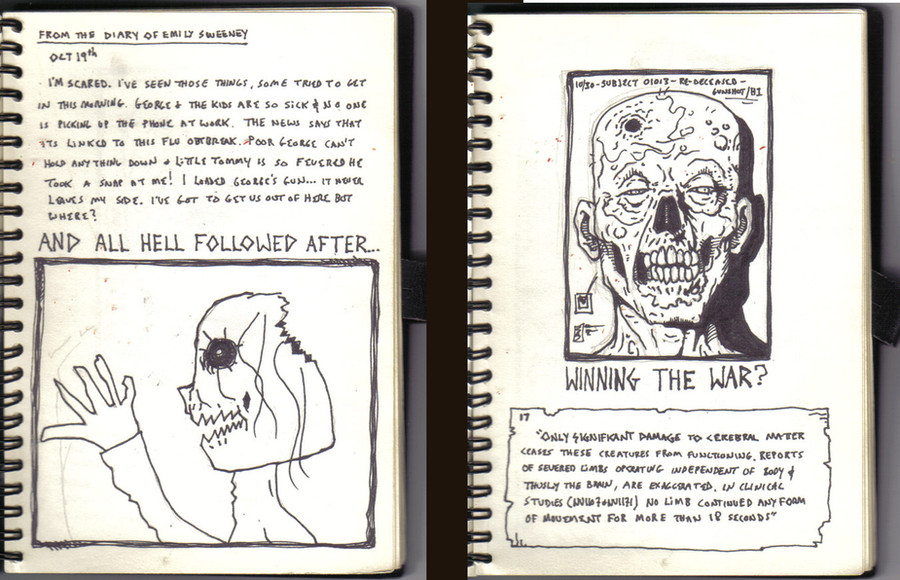 FROM THE DIARY OF EMILY SWEENEY
OCT 19th
I'M SCARED. I'VE SEEN THOSE THINGS, SOME TRIED TO GET
IN THIS MORNING. GEORGE & THE KIDS ARE SO SICK & NO ONE
IS PICKING UP THE PHONE AT WORK. THE NEWS SAYS THAT
ITS LINKED TO THIS FLU OUTBREAK. POOR GEORGE CAN'T
HOLD ANYTHING DOWN & LITTLE TOMMY IS SO FEVERED HE
TOOK A SNAP AT ME! I LOADED GEORGE'S GUN... IT NEVER
LEAVES MY SIDE. I'VE GOT TO GET US OUT OF HERE BUT
WHERE?
AND ALL HELL FOLLOWED AFTER...
10/30-SUBJECT 01013-RE-DECEASED-
GUNSHOT/HI
WINNING THE WAR?
17
"ONLY SIGNIFICANT DAMAGE TO CEREBRAL MATTER
CEASES THESE CREATURES FROM FUNCTIONING. REPORTS
OF SEVERED LIMBS OPERATING INDEPENDENT OF BODY &
THUSLY THE BRAIN, ARE EXAGGERATED. IN CLINICAL
STUDIES NO LIMB CONTINUED ANY FORM
OF MOVEMENT FOR MORE THAN 18 SECONDS"